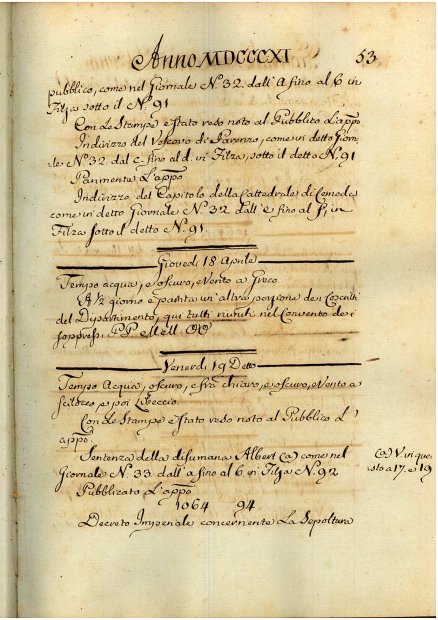 Anno MDCCCXI 53
pubblico, come nel Giornale N.º 32. dall' a fino al 6 in
Filza sotto il N.º 91
Con le Stampe è stato reso noto al Pubblico l'appo
Indirizzo del Vescovo di Parenzo, come in detto Gior-
le N.º 32. dal c fino al d. in Filza, sotto il detto N.º 91
Parimente l'appo
Indirizzo del Capitolo della Cattedrale di Ceneda
come in detto Giornale N.º 32. dall' e fino al f, in
Filza sotto il detto N.º 91.
Giovedì 18 Aprile
Tempo acqua, e oscuro, e Vento a Greco.
A ½ giorno è partita un' altra porzione dei Coscritti
del Dipartimento, qui tutti riuniti nel Convento dei
soppressi PP. Mell.
Venerdì 19 Detto
Tempo Acqua, oscuro, e fra chiaro, e oscuro, e Vento a
Scilocco, e poi Libeccio.
Con le Stampe è stato reso noto al Pubblico l'
appo.
Sentenza della disumana Albert (a) come nel
Giornale N.º 33. dall' a fino al 6 in Filza N.º 92
(a) V. in que
sto a 17. e 19
Pubblicato l'appo
1064 94
Decreto Imperiale concernente la Sepoltura